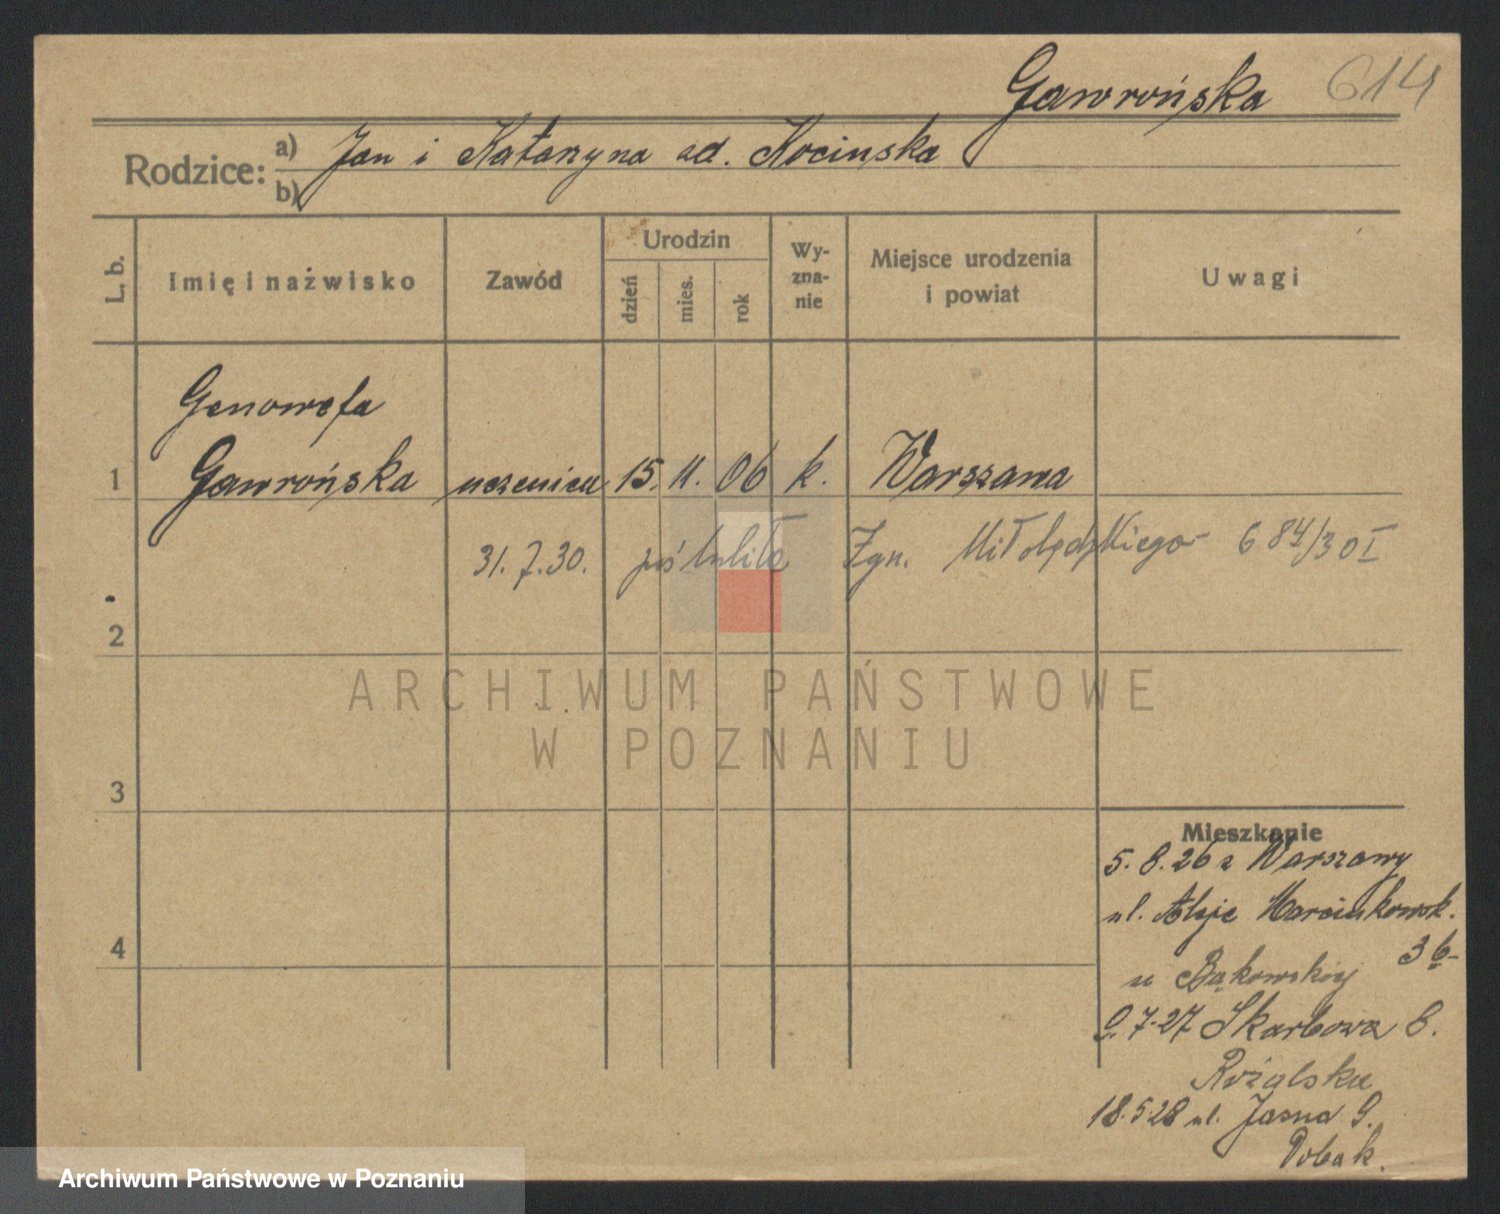 Gawrońska 614
Rodzice: a) Jan i Katarzyna zd. Kocińska
b)
L. b.
Imię i nazwisko
Zawód
Urodzin
dzień
mies.
rok
Wy-
zna-
nie
Miejsce urodzenia
i powiat
Uwagi
Genowefa
1 Gawrońska uczenica 15. 11. 06 k. Warszawa
31. 7. 30. Zgn. 684/30 I
2
ARCHIWUM PAŃSTWOWE
W POZNANIU
3
Mieszkanie
5. 8. 26 z Warszawy
ul. Aleje Marcinkowsk.
36
4
u Bąkowskiej
9. 7-27 Skarbowa 8.
18. 5 28 ul. Jasna 9.
Archiwum Państwowe w Poznaniu